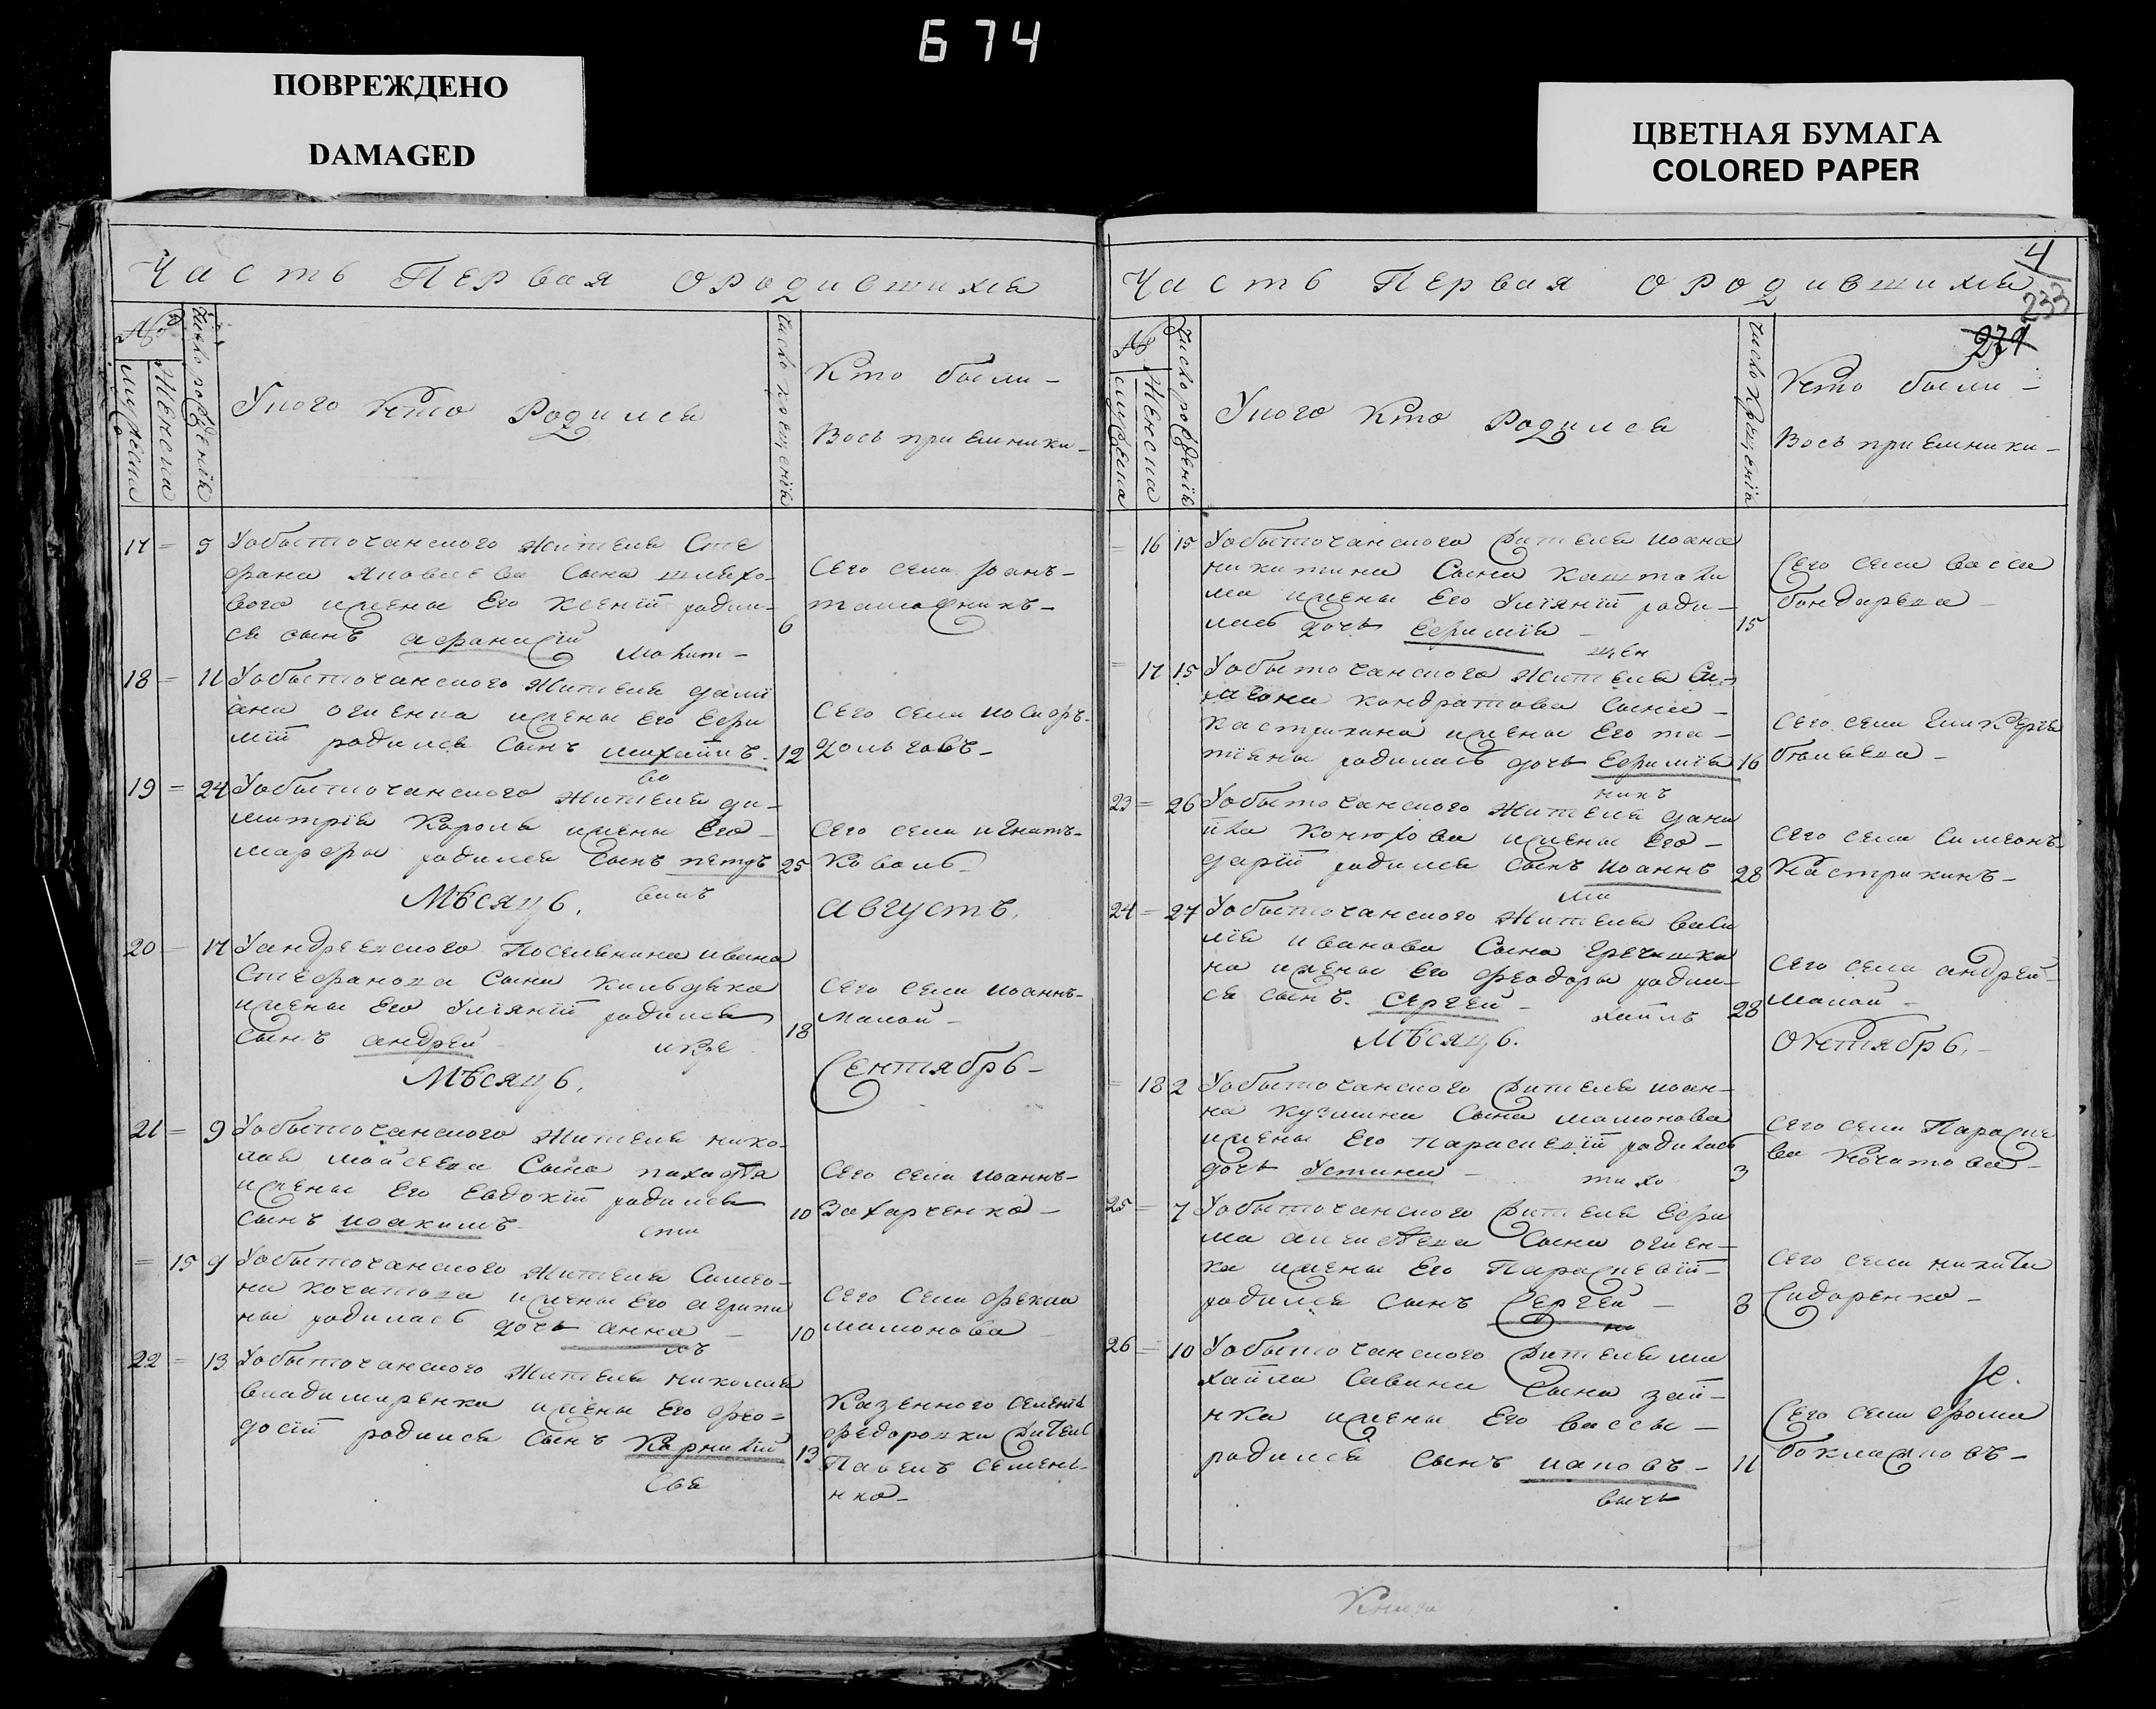 674
ПОВРЕЖДЕНО
DAMAGED
ЦВЕТНАЯ БУМАГА
COLORED PAPER
Часть Первая ородившихся
№
мужеска
Женска
Число рожденія
Уного Кто Родился
Число крещенія
Кто были -
Восприемники -
17 = 5 Уобыточанского Жителя Сте
фана Яковлева Сына шляхо-
вого жены Его Ксеніи роди-
ся сынъ афанасій 6
Сего села Іоанъ-
18 = 11 Уобыточанского Жителя дамі
ана огиенка жены Его Ефи
міи родился Сынъ михаилъ 12
Сего села
19 = 24 Уобыточанского Жителя ди-
митрія Короля жены Его -
марфы родился Сынъ петръ 25
Сего села игнатъ-
Коваль
Мѣсяцъ. августъ.
20 - 17 Уандреевского Поселянина ивана
Стефанова Сына
жены Его Уліяніи родился
Сынъ андрей 18
Сего села иоаннъ-
малой -
Мѣсяцъ. Сентябрь -
21 = 9 Уобыточанского Жителя нико-
лая мойсеева Сына
жены Его Евдокіи родился
Сынъ иоакимъ 10
Сего села иоаннъ-
Захарченко -
= 15 9 Уобыточанского Жителя Симео-
на кочатова жены Его агрипи
ны родилась дочь анна - 10
Сего села фекла
мамонова -
22 = 13 Уобыточанского Жителя николая
владимиренка жены Его фео=
досіи родился Сынъ Корнилій 13
Казенного селенія
федоровки житель
Павелъ семене-
нко -
Часть Первая ородившихся
4
233
274
№
мужеска
Женска
Число рожденія
Уного Кто Родился
Число Крещенія
Кто были -
Восприемники -
= 16 15 Уобыточанского жителя иоана
никитина Сына
жены Его Уліяніи роди-
лась дочь Ефимія - 15
Сего села васса
бондарева -
= 17 15 Уобыточанского Жителя Си-
меона кондратова Сына -
Кастрикина жены Его та-
тіяны родилась дочь Ефимія 16
Сего села Гликерія
23 = 26 Уобыточанского Жителя дани
ила Конюхова жены Его -
даріи родился Сынъ иоаннъ 28
Сего села Симеонъ
Кастрикинъ -
24 = 27 Уобыточанского Жителя васи
лія иванова Сына Гречишки
на жены Его феодоры роди-
ся сынъ. Сергей - 28
Сего села андрей
малой -
Мѣсяцъ. Октябрь. -
= 18 2 Уобыточанского жителя иоан-
на кузмина Сына мамонова
жены Его параскевіи родилась
дочь Устина - 3
Сего села Параске
ва Кочатова -
25 = 7 Уобыточанского жителя Ефи
ма алексѣева Сына огиен-
ка жены Его Параскевіи -
родился сынъ Сергей - 8
Сего села никита
Сидоренко -
26 = 10 Уобыточанского жителя ми
хаила Савина Сына зай-
нка жены Его вассы -
родился сынъ иаковъ - 11
Сего села фома
боклановъ -
Книга